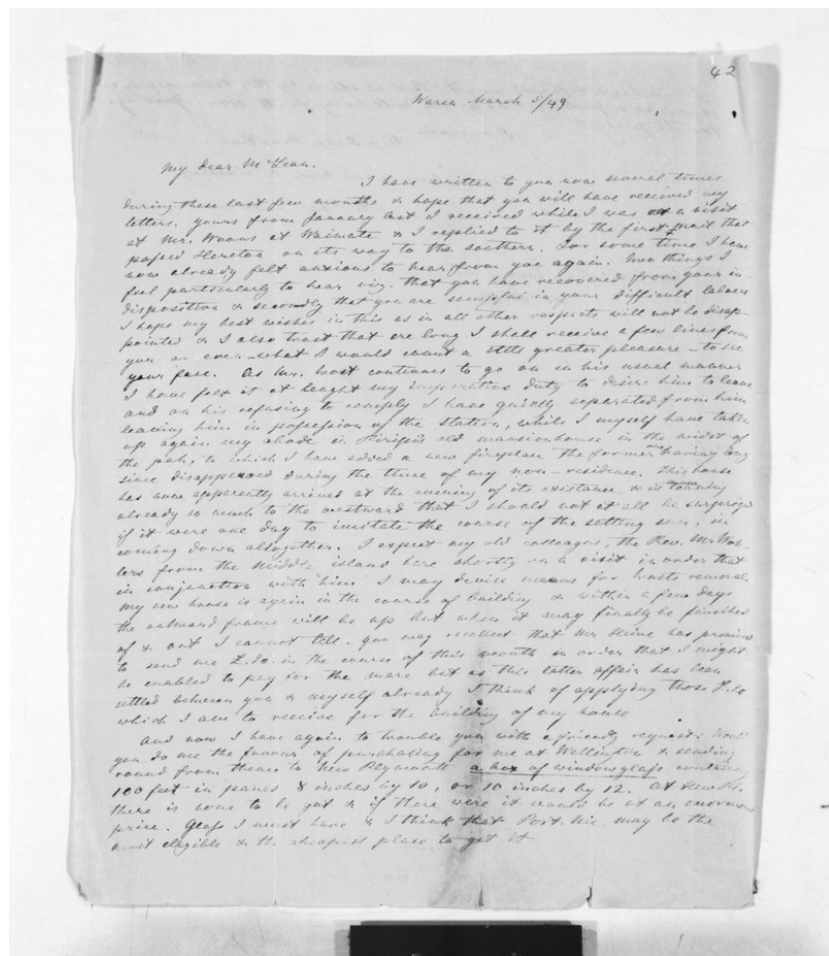 42
Warea March 5/49
My dear McLean.
I have written to you now several times
during these last few months & hope that you will have received my
letters. yours from January last I received while I was on a visit
at Mr. Woons at Waimate & I replied to it by the first mail that
passed Heretoa on its way to the southern. For some time I have
now already felt anxious to hear from you again. Two things I
feel particularly to hear viz. that you have recovered from your in-
disposition & secondly that you are successful in your difficult labours
I hope my best wishes in this as in all other respects will not be disap-
pointed & I also trust that ere long I shall receive a few lines from
you or even what I would count a still greater pleasure – to see
your face. As Mr. Host continues to go on in his usual manner
I have felt it at lenght my imperative duty to desire him to leave
and on his refusing to comply I have quietly seperated from him
leaving him in possession of the station, while I myself have taken
up again my abode in old mansionhouse in the midst of
the pah, to which I have added a new fireplace the former having long
since disappeared during the time of my non-residence. This house
has now apparently arrived at the evening of its existance & is leaning
already so much to the westward that I should not at all be surprized
if it were one day to imitate the course of the setting sun, in
coming down altogather. I expect my old colleague, the Rev. Mr Woh-
lers from the Middle island here shortly on a visit in order that
in conjunction with him I may devise means for hosts removal.
my new house is again in the course of building & within a few days
the outward frame will be up but when it may finally be finished
of & out I cannot tell. you may recollect that Mr Heine has promised
to send me £.10. in the course of this month in order that I might
be enabled to pay for the mare but as this latter affair has been
settled between you & myself already I think of applying those £.10
which I am to receive for the building of my house
And now I have again to trouble you with a friendly request: Would
you do me the favour of purchasing for me at Wellington & sending
round from thence to New Plymouth a box of windowglass containing
100 feet in panes 8 inches by 10, or 10 inches by 12. At New Pl.
there is none to be got & if there were it would be at an enormous
price. Glass I must have & I think that Port. Nic. may be the
most eligible & the cheapest place to get it